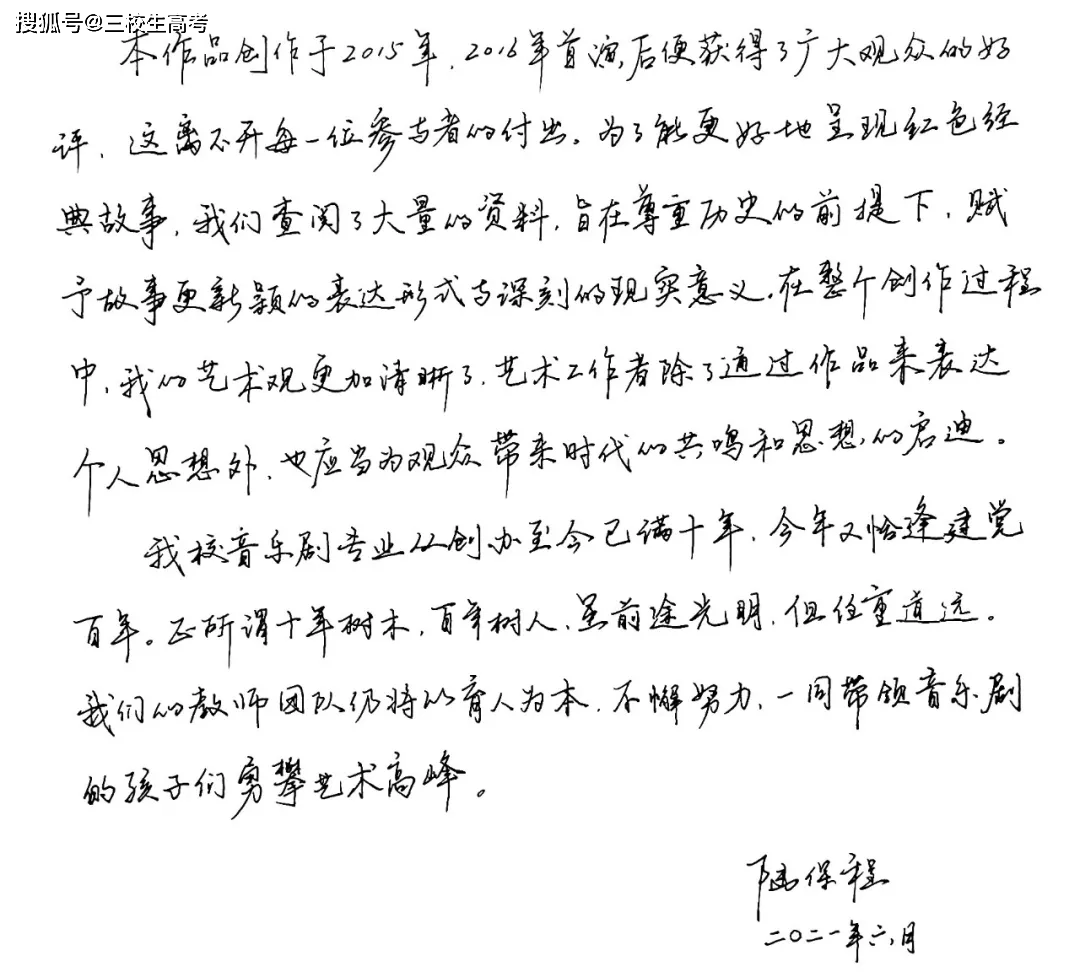 搜狐号@三校生高考
本作品创作于2015年，2016年首演后便获得了广大观众的好
评，这离不开每一位参与者的付出。为了能更好地呈现红色经
典故事，我们查阅了大量的资料，旨在尊重历史的前提下，赋
予故事更新颖的表达形式与深刻的现实意义。在整个创作过程
中，我的艺术观更加清晰了，艺术工作者除了通过作品来表达
个人思想外，也应当为观众带来时代的共鸣和思想的启迪。
我校音乐剧专业从创办至今已满十年，今年又恰逢建党
百年。正所谓十年树木，百年树人，虽前途光明，但任重道远。
我们的教师团队仍将以育人为本，不懈努力，一同带领音乐剧
的孩子们勇攀艺术高峰。
保程
二〇二一年六月